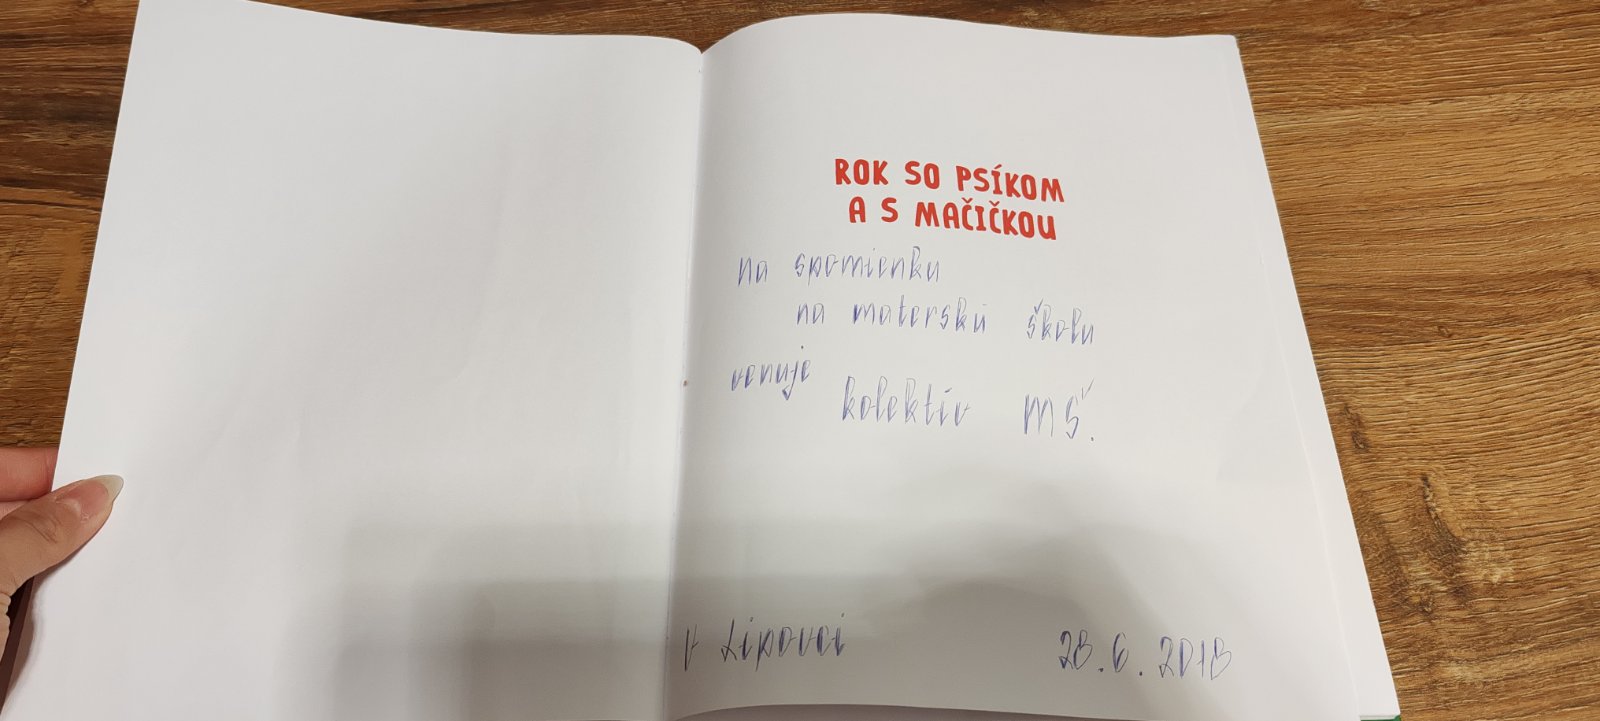 ROK SO PSÍKOM
A S MAČIČKOU
na spomienku
na materskú školu
venuje
kolektív MŠ.
V Lipovci 28.6.2018